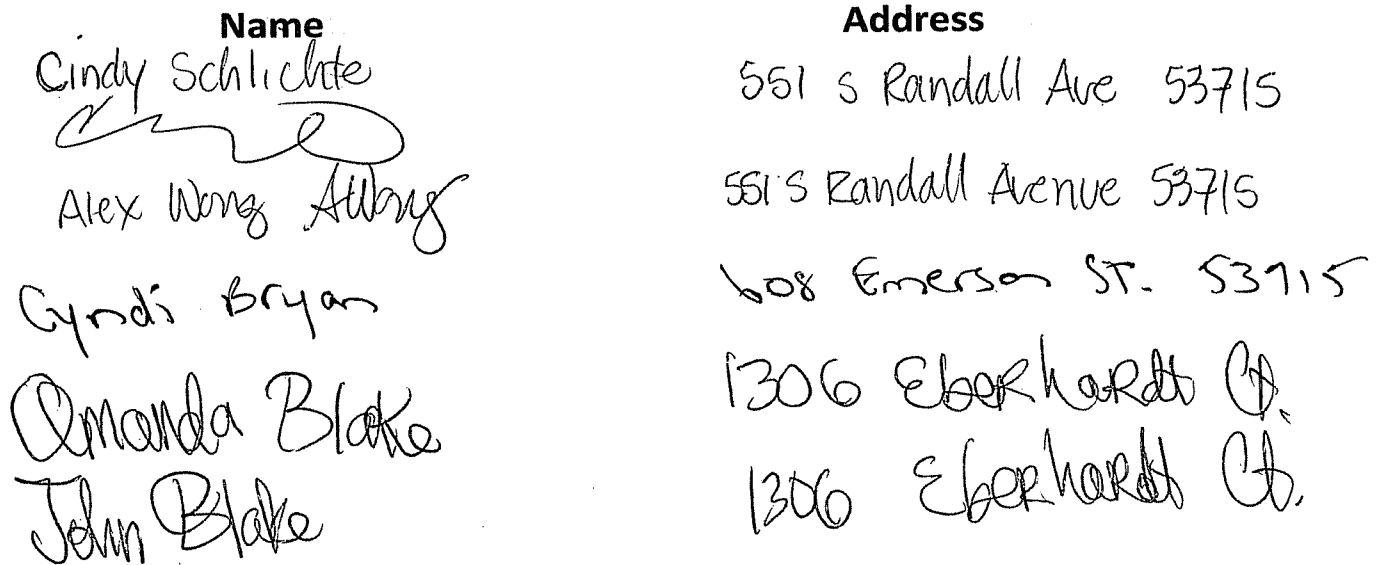 Name Address
Cindy Schlichte 551 S Randall Ave 53715
Alex Wong AWong 551 S Randall Avenue 53715
Cyndi Bryan 608 Emerson ST. 53715
Amanda Blake 1306 Eberhardt Ct.
John Blake 1306 Eberhardt Ct.